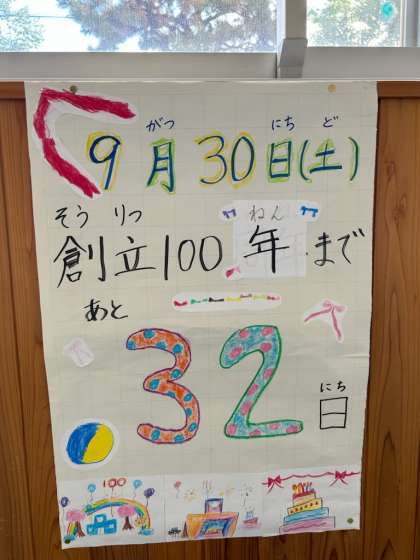 がつ にち ど
9月30日(土)
そう りつ ねん
創立100年まで
あと
にち
32日
100